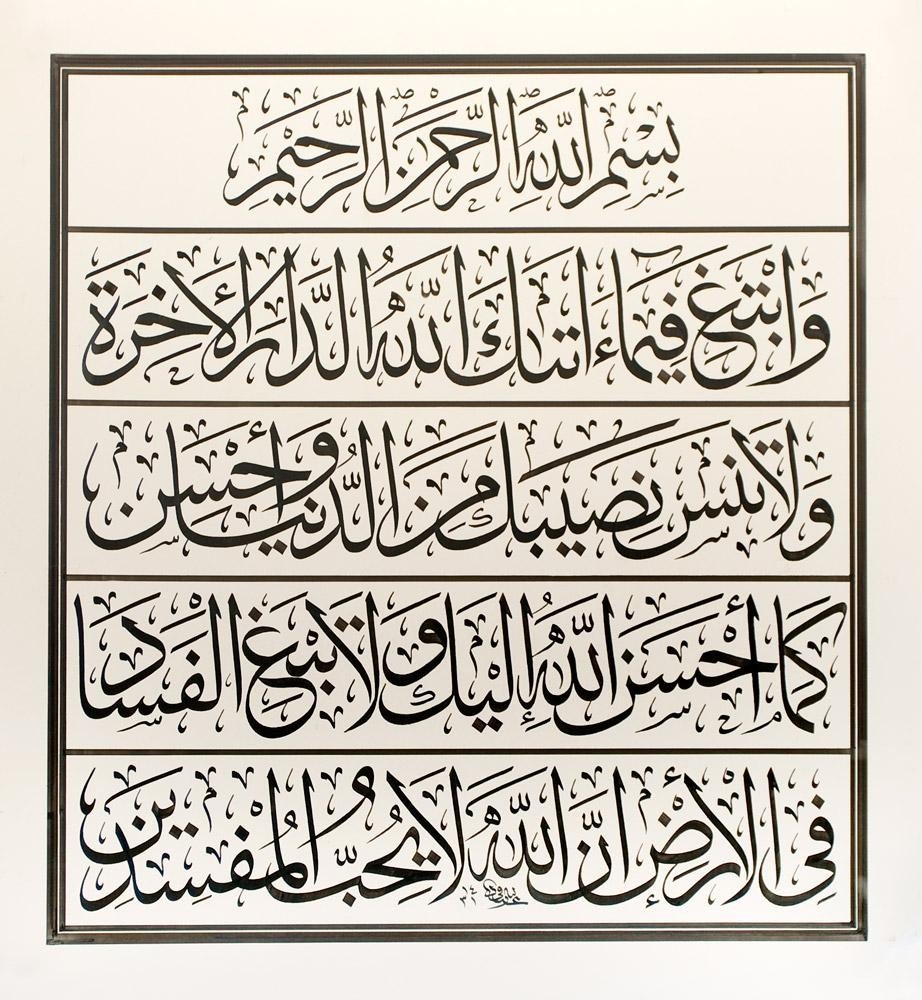 بِسْمِ اللَّهِ الرَّحْمَنِ الرَّحِيمِ
وَابْتَغِ فِيمَا ءَاتَىٰكَ اللَّهُ الدَّارَ الْأَخِرَةَ
وَلَا تَنْسَ نَصِيبَكَ مِنَ الدُّنْيَا وَأَحْسِنْ
كَمَا أَحْسَنَ اللَّهُ إِلَيْكَ وَلَا تَبْغِ الْفَسَادَ
فِي الْأَرْضِ إِنَّ اللَّهَ لَا يُحِبُّ الْمُفْسِدِينَ
١٤٣١